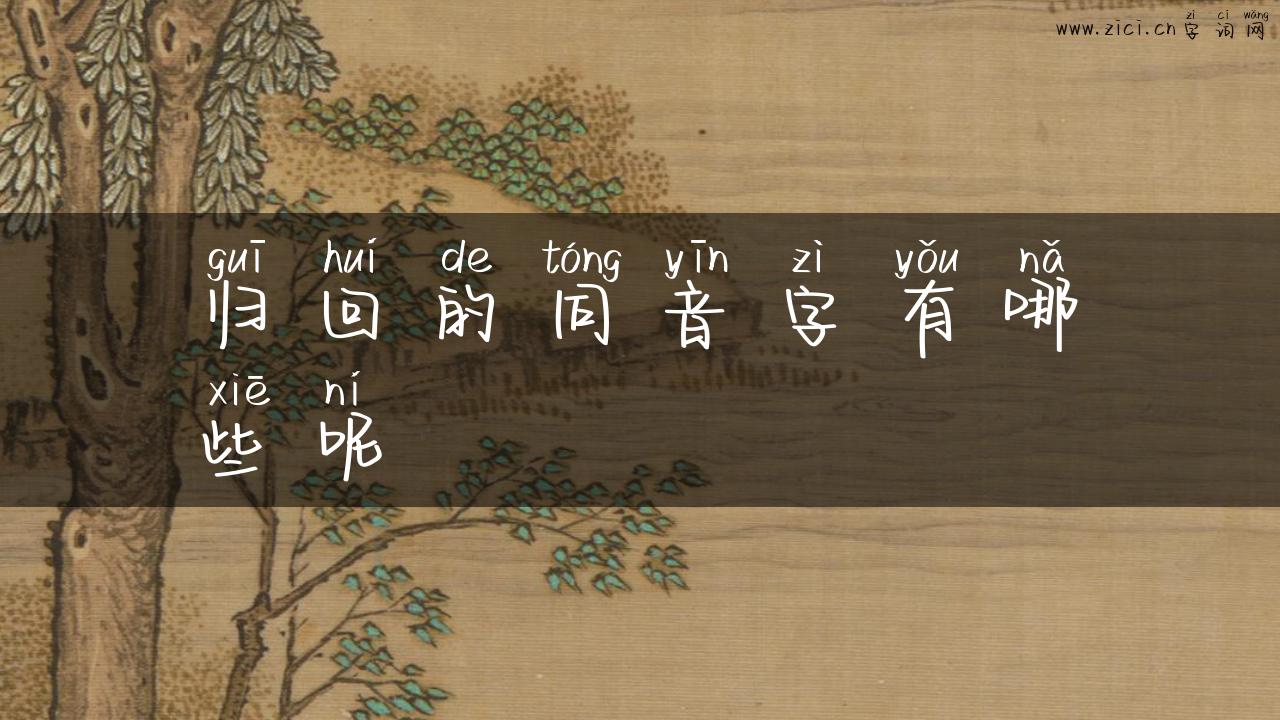 zì cí wǎng
www.zici.cn字词网
guī huí de tóng yīn zì yǒu nǎ
归回的同音字有哪
xiē ní
些呢